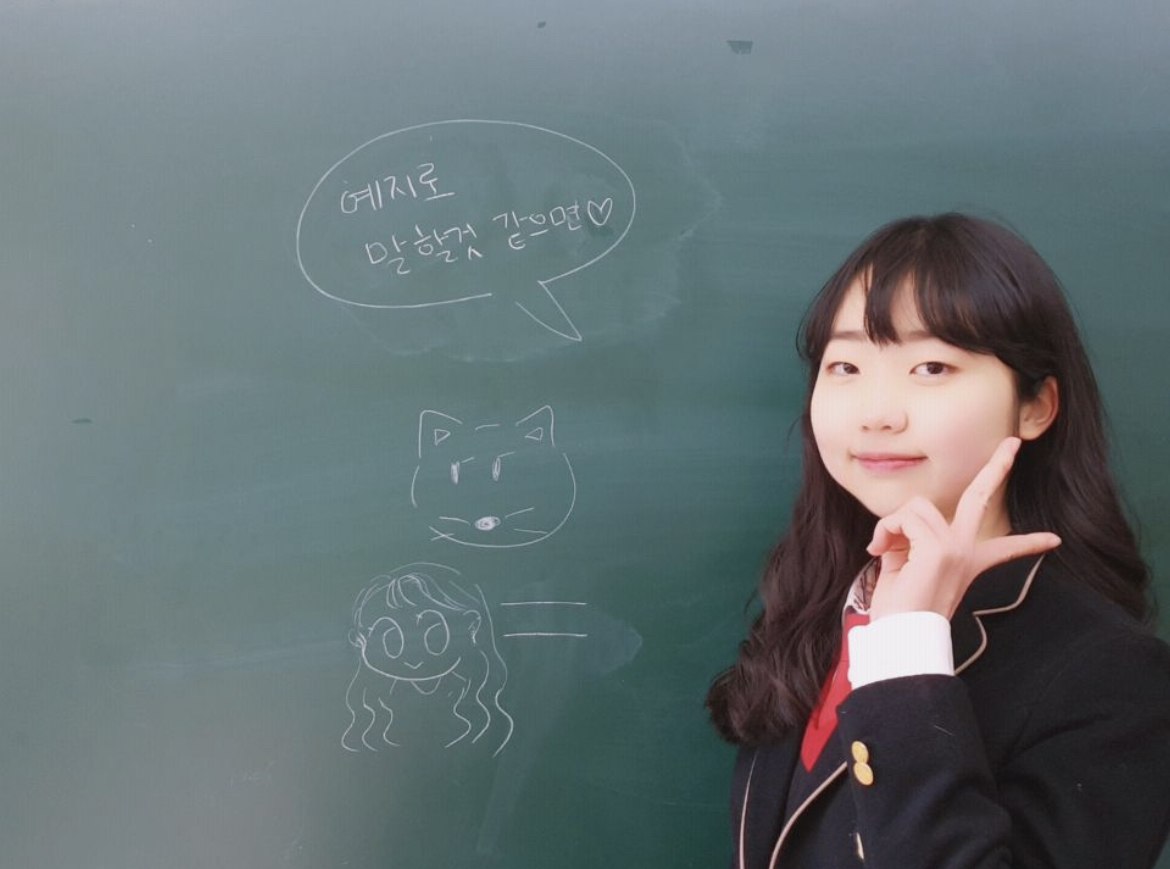 예지로
말할것 같으면♡